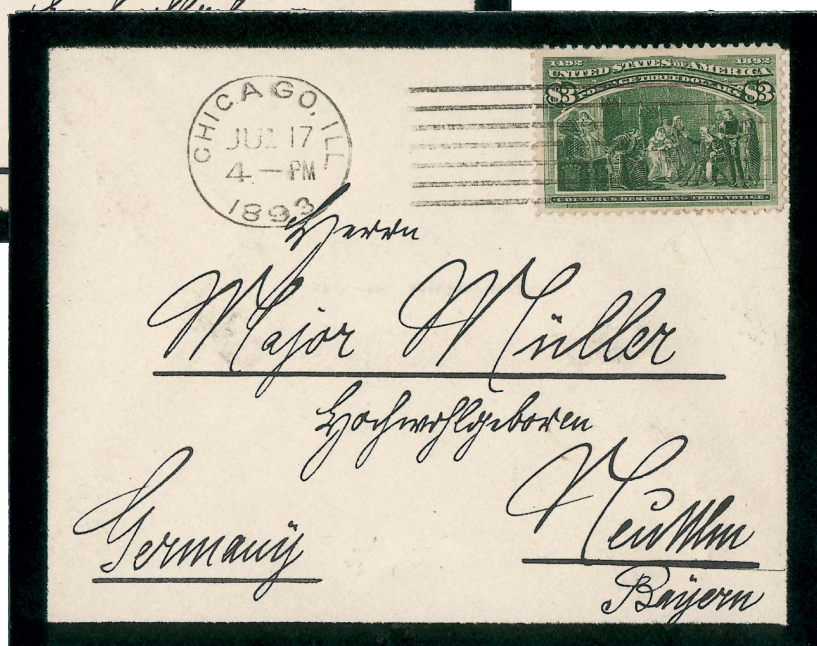 CHICAGO, ILL.
JUL 17
4 - PM
1893
1492 1892
UNITED STATES OF AMERICA
POSTAGE THREE DOLLARS
$3 $3
COLUMBUS DESCRIBING THIRD VOYAGE
Herrn
Major Müller
Hochwohlgeboren
Germany
NeuUlm
Bayern